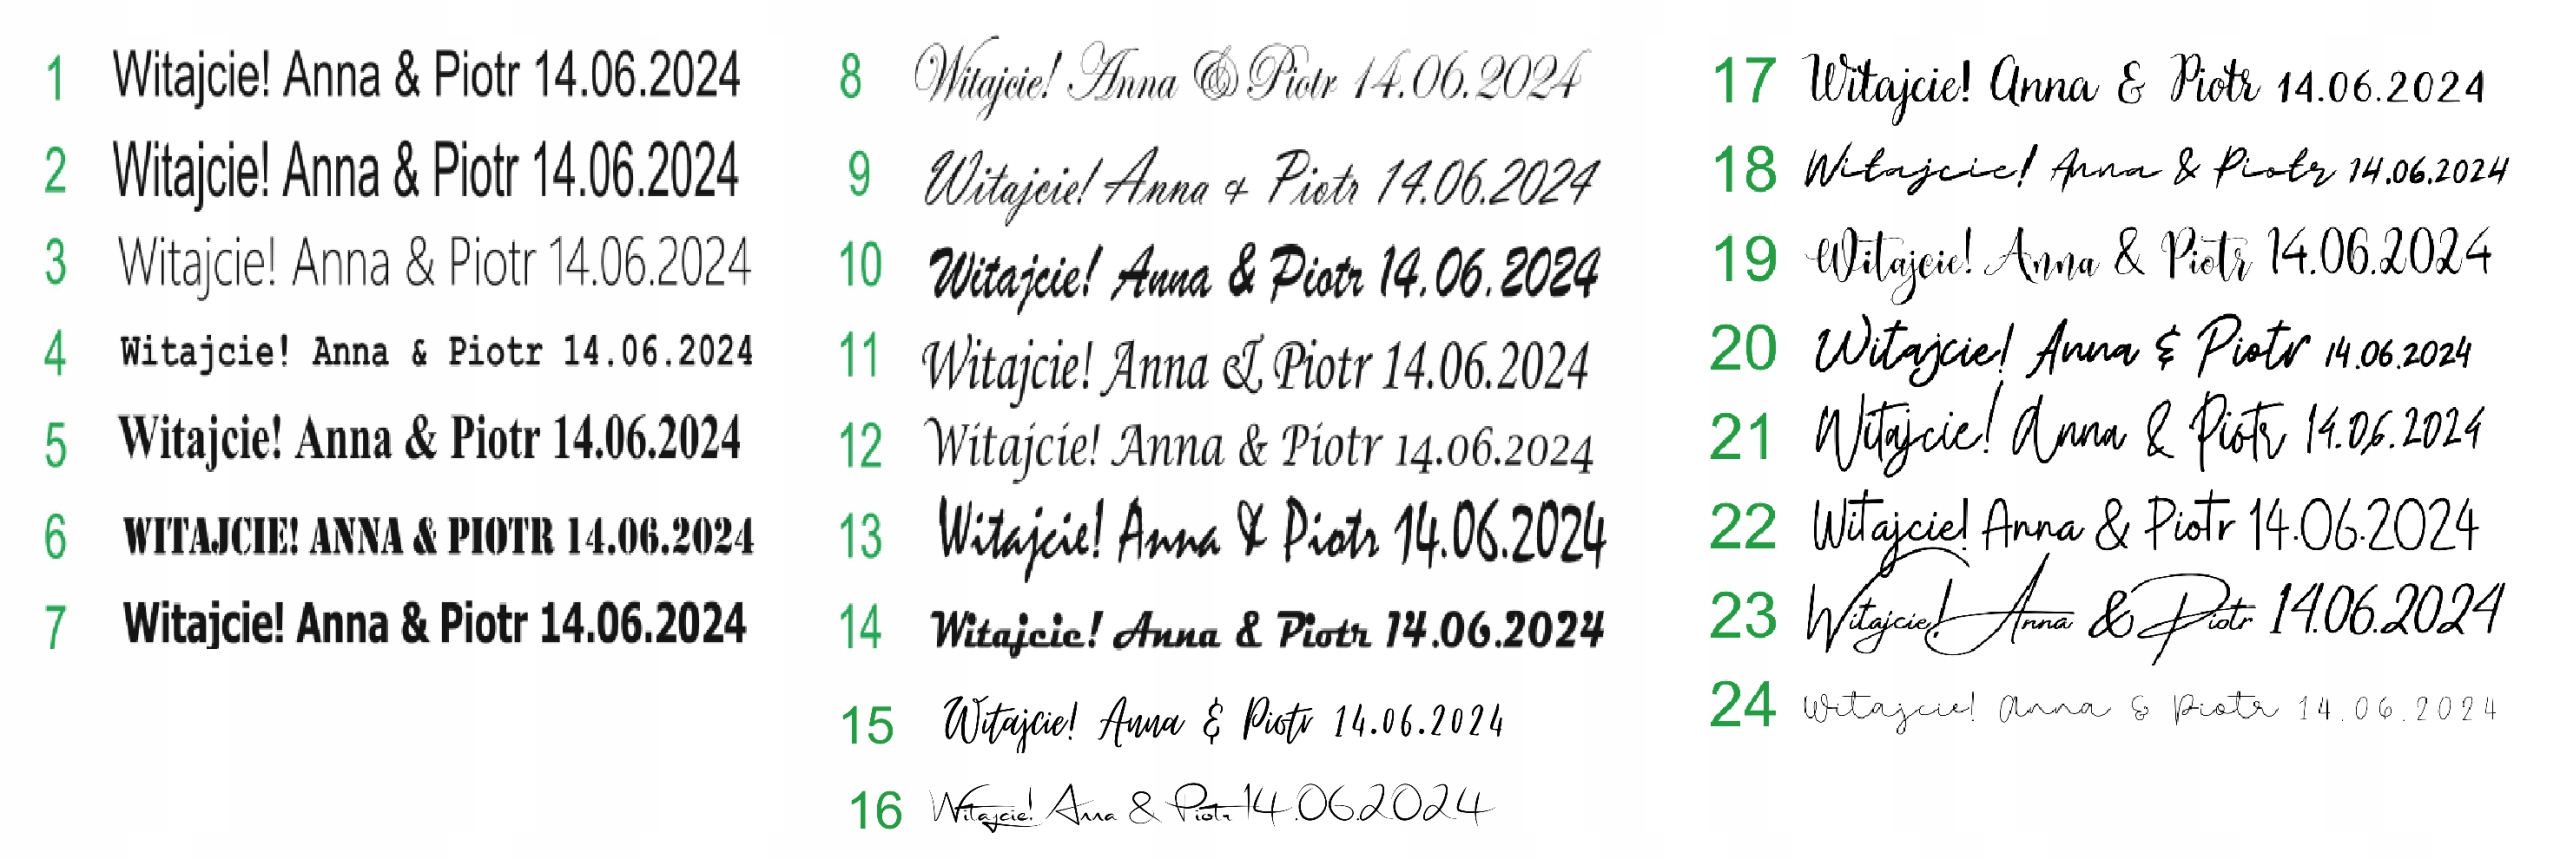 1 Witajcie! Anna & Piotr 14.06.2024
2 Witajcie! Anna & Piotr 14.06.2024
3 Witajcie! Anna & Piotr 14.06.2024
4 Witajcie! Anna & Piotr 14.06.2024
5 Witajcie! Anna & Piotr 14.06.2024
6 WITAJCIE! ANNA & PIOTR 14.06.2024
7 Witajcie! Anna & Piotr 14.06.2024
8 Witajcie! Anna & Piotr 14.06.2024
9 Witajcie! Anna & Piotr 14.06.2024
10 Witajcie! Anna & Piotr 14.06.2024
11 Witajcie! Anna & Piotr 14.06.2024
12 Witajcie! Anna & Piotr 14.06.2024
13 Witajcie! Anna & Piotr 14.06.2024
14 Witajcie! Anna & Piotr 14.06.2024
15 Witajcie! Anna & Piotr 14.06.2024
16 Witajcie! Anna & Piotr 14.06.2024
17 Witajcie! Anna & Piotr 14.06.2024
18 Witajcie! Anna & Piotr 14.06.2024
19 Witajcie! Anna & Piotr 14.06.2024
20 Witajcie! Anna & Piotr 14.06.2024
21 Witajcie! Anna & Piotr 14.06.2024
22 Witajcie! Anna & Piotr 14.06.2024
23 Witajcie! Anna & Piotr 14.06.2024
24 Witajcie! Anna & Piotr 14.06.2024